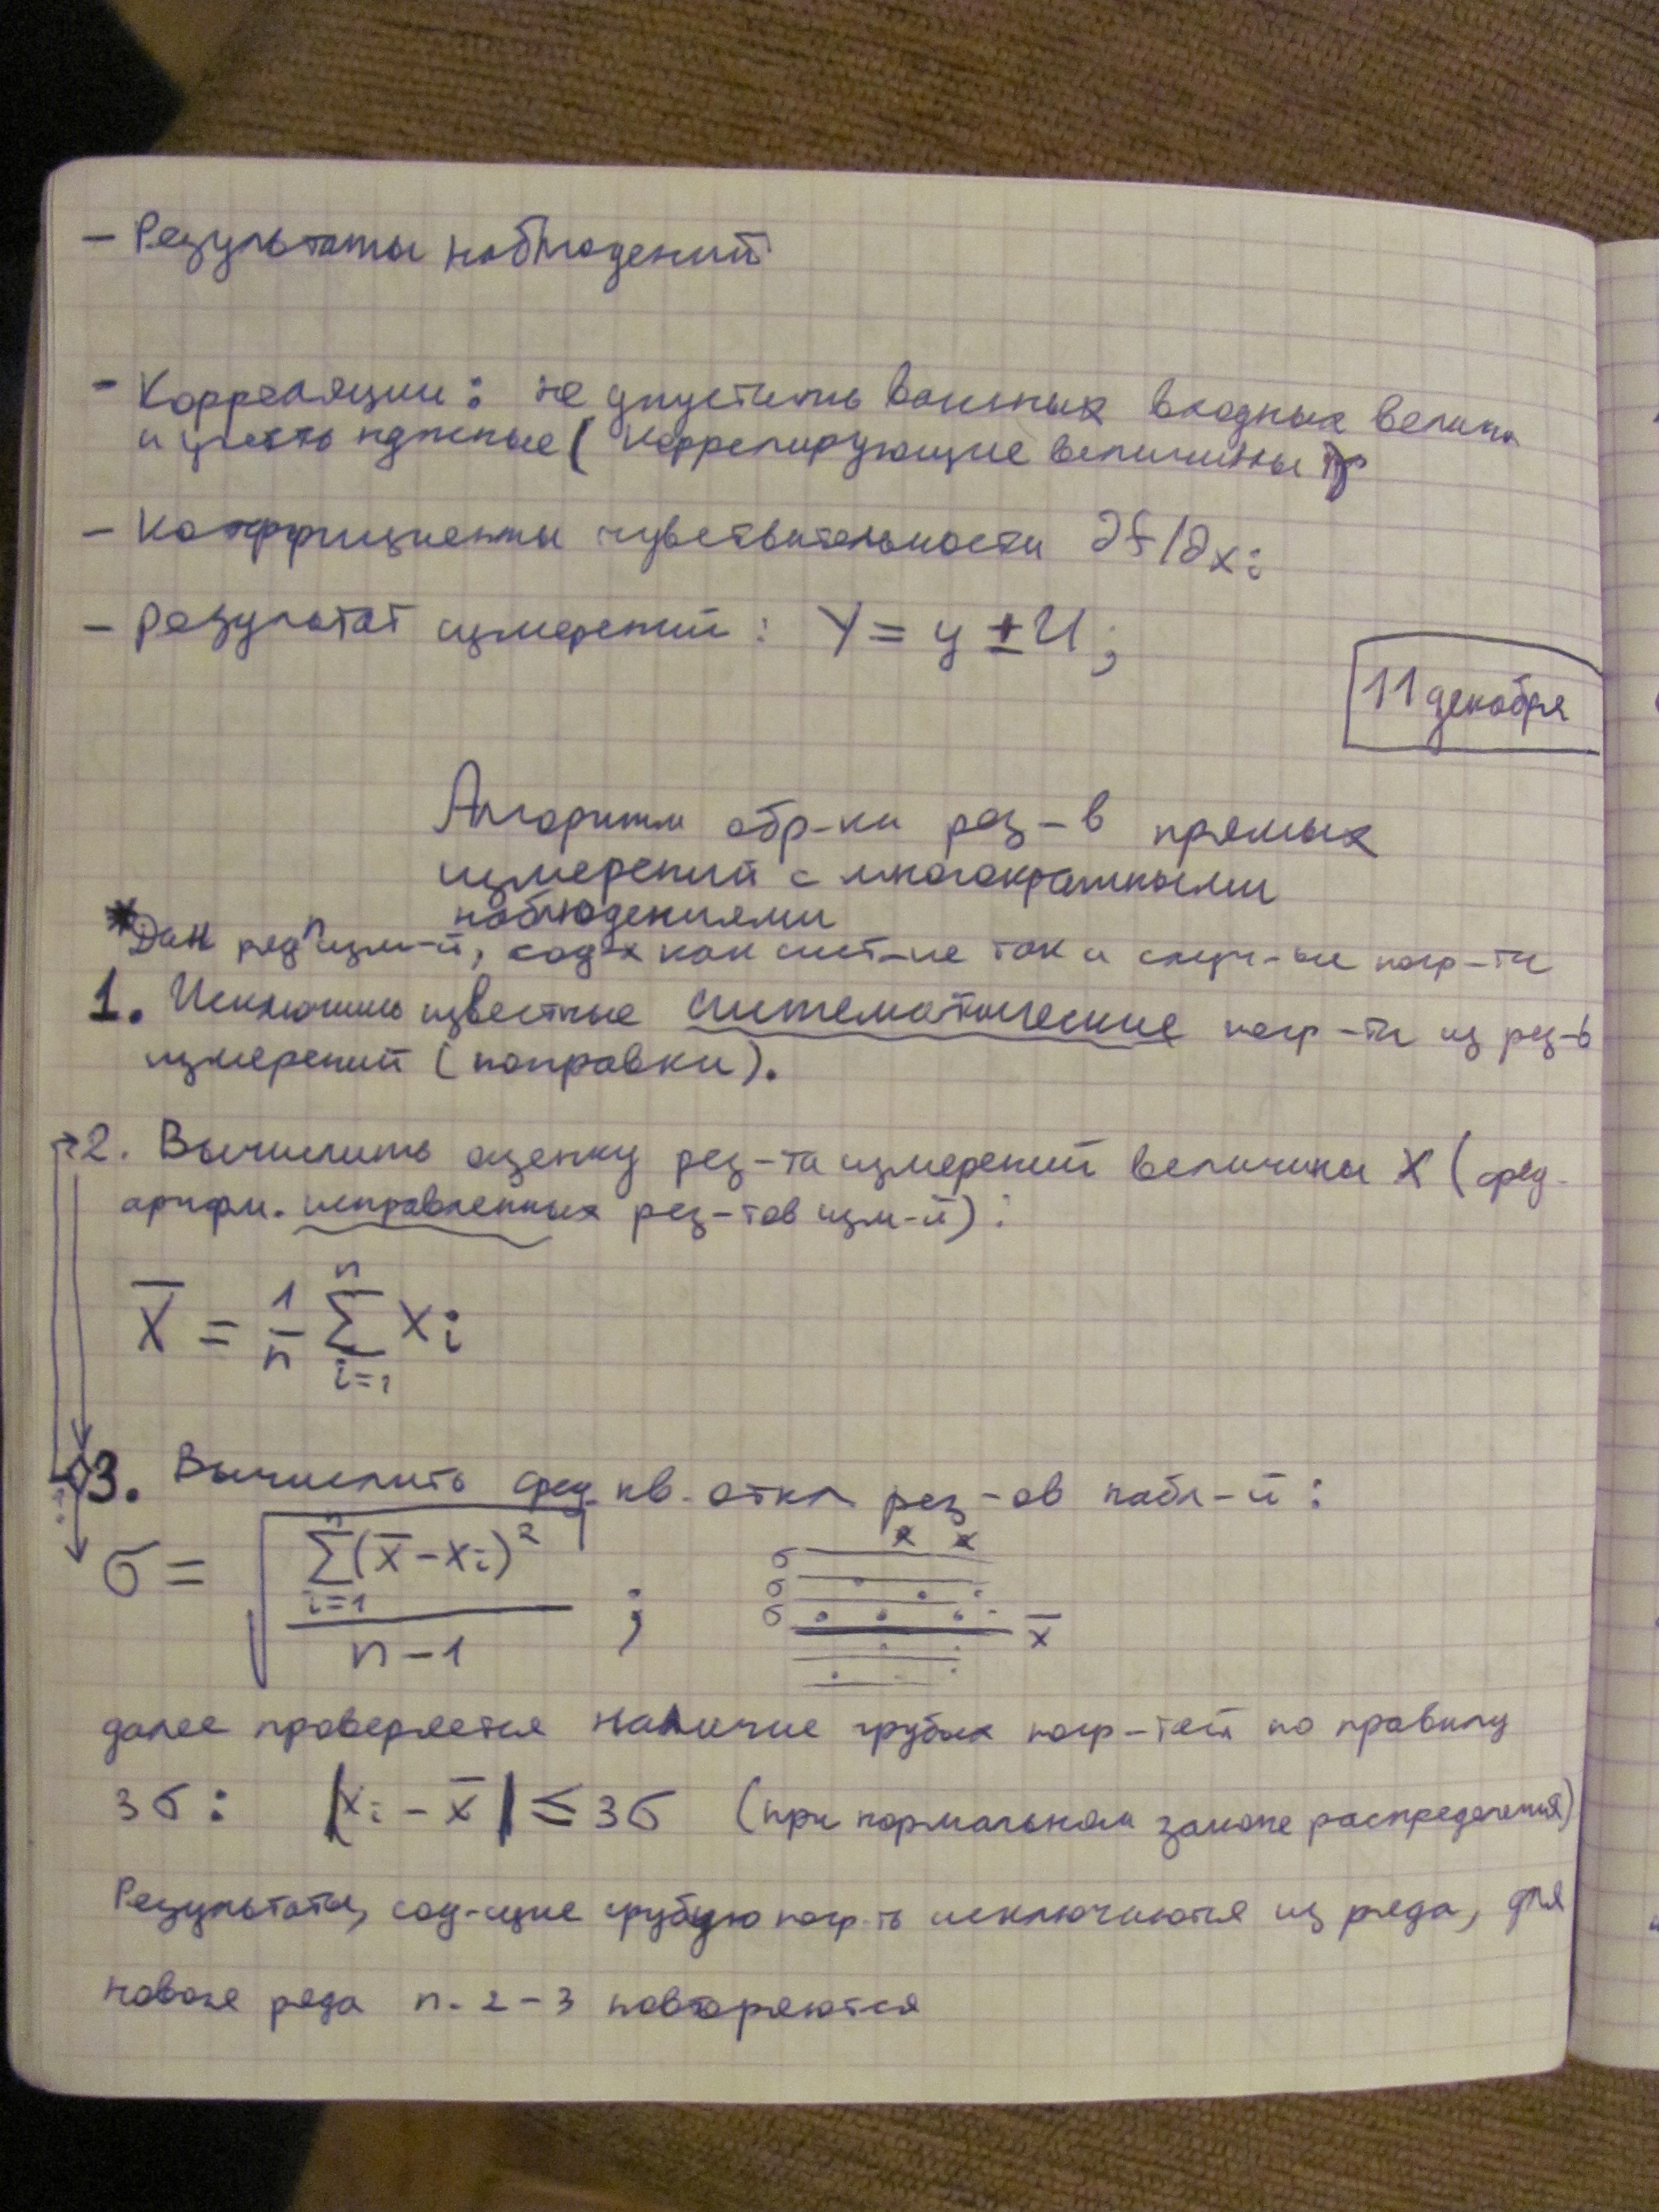 – Результаты наблюдений
– Корреляции: не упустить важных входных велич
и учесть нужные (коррелирующие величины
– Коэффициенты чувствительности ∂f/∂xi
– Результат измерений: Y = y ± U;
11 декабря
Алгоритм обр-ки рез-в прямых
измерений с многократными
наблюдениями
*Дан ряд n изм-й, сод-х как сист-ие так и случ-ые погр-ти
1. Исключить известные систематические погр-ти из рез-в
измерений (поправки).
2. Вычислить оценку рез-та измерений величины X (сред.
арифм. исправленных рез-тов изм-й):
X̄ = 1/n Σ(i=1..n) xi
3. Вычислить сред. кв. откл. рез-ов набл-й:
σ = √(Σ(i=1..n) (x̄ – xi)² / (n – 1)) ;
x x
σ
σ
σ
x̄
далее проверяется наличие грубых погр-тей по правилу
3σ: |xi – x̄| ≤ 3σ (при нормальном законе распределения)
Результаты, сод-щие грубую погр-ть исключаются из ряда, для
нового ряда п. 2–3 повторяются